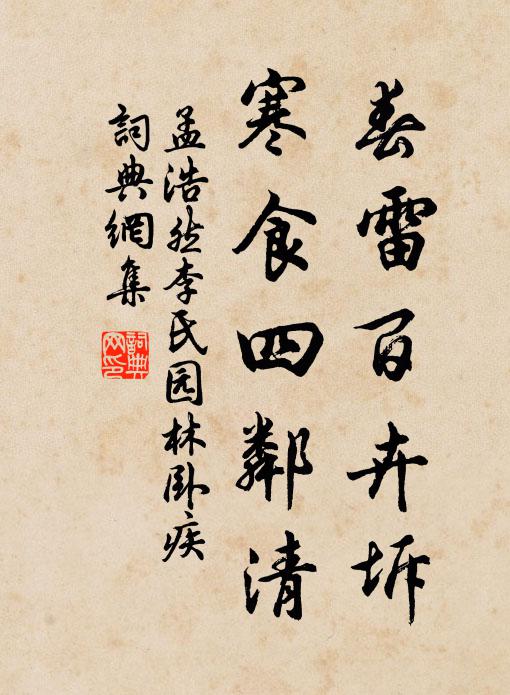 春雷百卉坼
寒食四鄰清
孟浩然李氏园林卧疾
詞典網集
詞典
网印